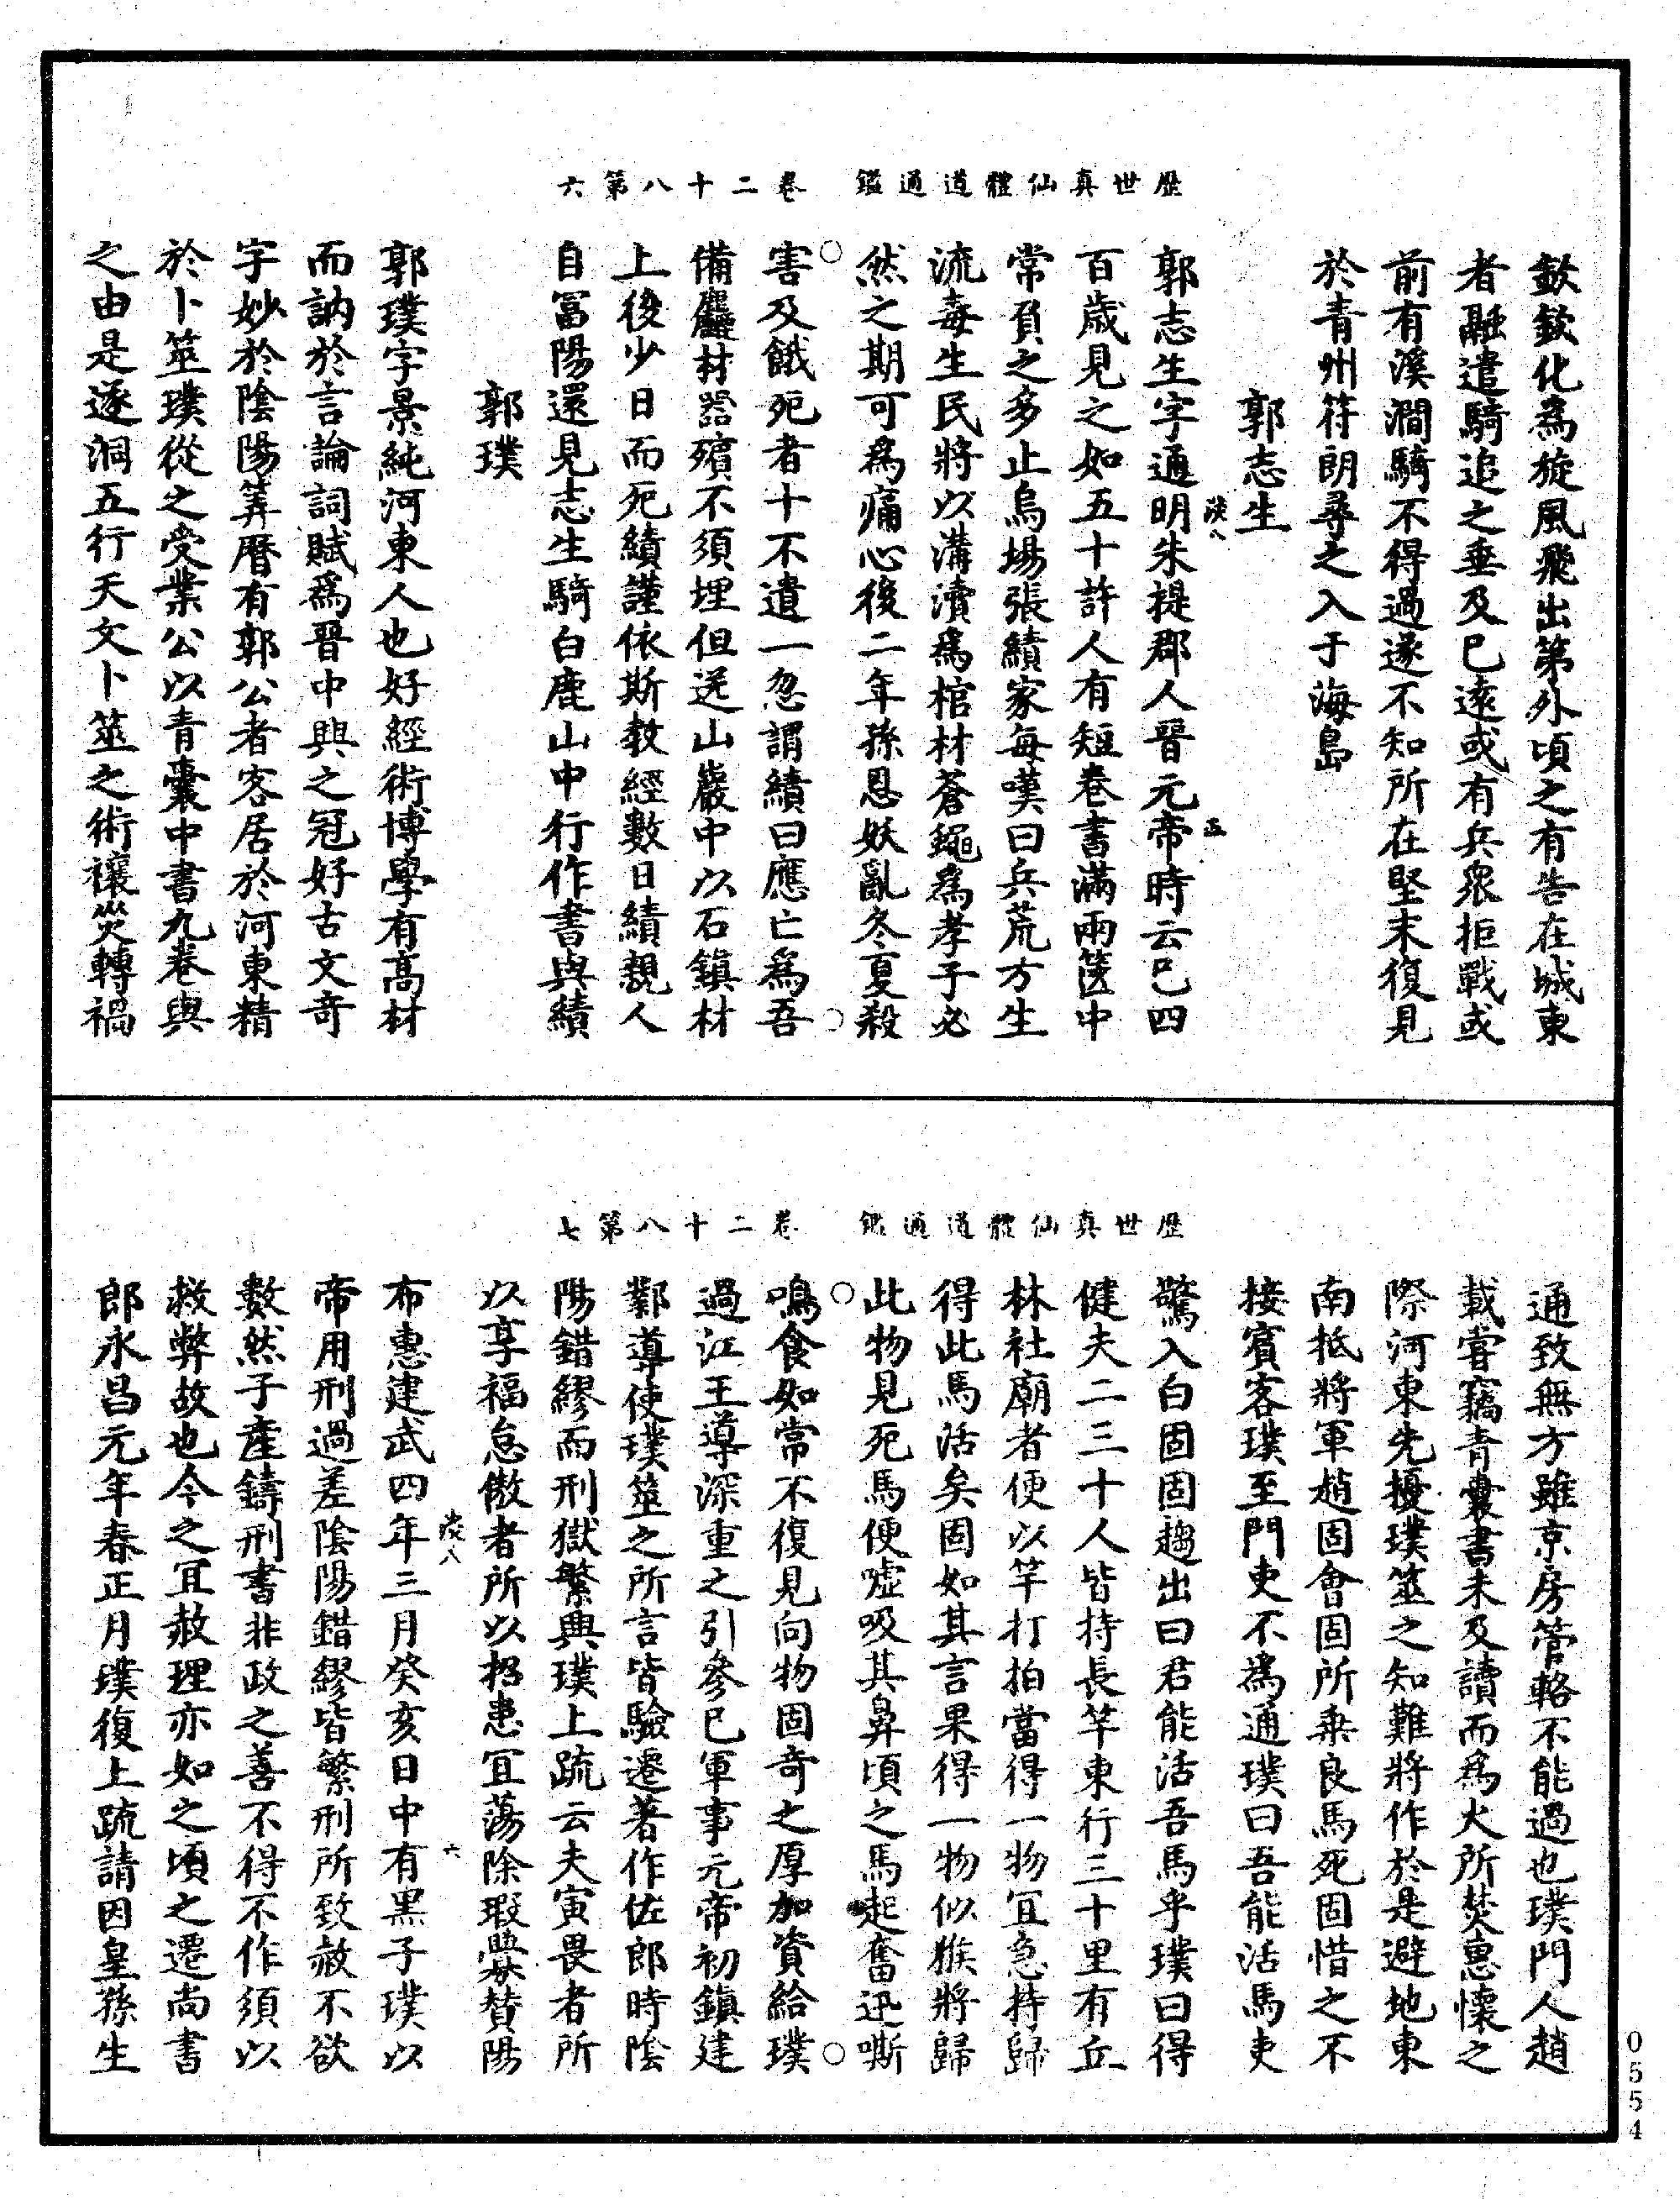 歷世真仙體道通鑑　卷二十八第六
欻欻化為旋風飛出第外頃之有告在城東
者融遣騎追之垂及已遠或有兵眾拒戰或
前有溪澗騎不得過遂不知所在堅末復見
於青州符朗尋之入于海島
郭志生
淡八
五
郭志生字通明朱提郡人晉元帝時云已四
百歲見之如五十許人有短卷書滿兩篋中
常負之多止烏場張績家每嘆曰兵荒方生
流毒生民將以溝瀆為棺材蒼蠅為孝子必
然之期可為痛心後二年孫恩妖亂冬夏殺
害及餓死者十不遺一忽謂績曰應亡為吾
備麤材器殯不須埋但送山巖中以石鎮材
上後少日而死績謹依斯教經數日績親人
自冨陽還見志生騎白鹿山中行作書與績
郭璞
郭璞字景純河東人也好經術博學有高材
而訥於言論詞賦為晉中興之冠好古文奇
字妙於陰陽筭曆有郭公者客居於河東精
於卜筮璞從之受業公以青囊中書九卷與
之由是遂洞五行天文卜筮之術禳災轉禍
歷世真仙體道通鑑　卷二十八第七
通致無方雖京房管輅不能過也璞門人趙
載嘗竊青囊書未及讀而為火所焚惠懷之
際河東先擾璞筮之知難將作於是避地東
南抵將軍趙固會固所乘良馬死固惜之不
接賓客璞至門吏不為通璞曰吾能活馬吏
驚入白固固趨出曰君能活吾馬乎璞曰得
健夫二三十人皆持長竿東行三十里有丘
林社廟者便以竿打拍當得一物冝急持歸
得此馬活矣固如其言果得一物似猴將歸
此物見死馬便噓吸其鼻頃之馬起奮迅嘶
鳴食如常不復見向物固奇之厚加資給璞
過江王導深重之引參已軍事元帝初鎮建
鄴導使璞筮之所言皆驗遷著作佐郎時陰
陽錯繆而刑獄繁興璞上疏云夫寅畏者所
以享福怠傲者所以招患冝蕩除瑕釁贊陽
淡八
六
布惠建武四年三月癸亥日中有黑子璞以
帝用刑過差陰陽錯繆皆繁刑所致赦不欲
數然子產鑄刑書非政之善不得不作須以
救弊故也今之冝赦理亦如之頃之遷尚書
郎永昌元年春正月璞復上疏請因皇孫生
0554